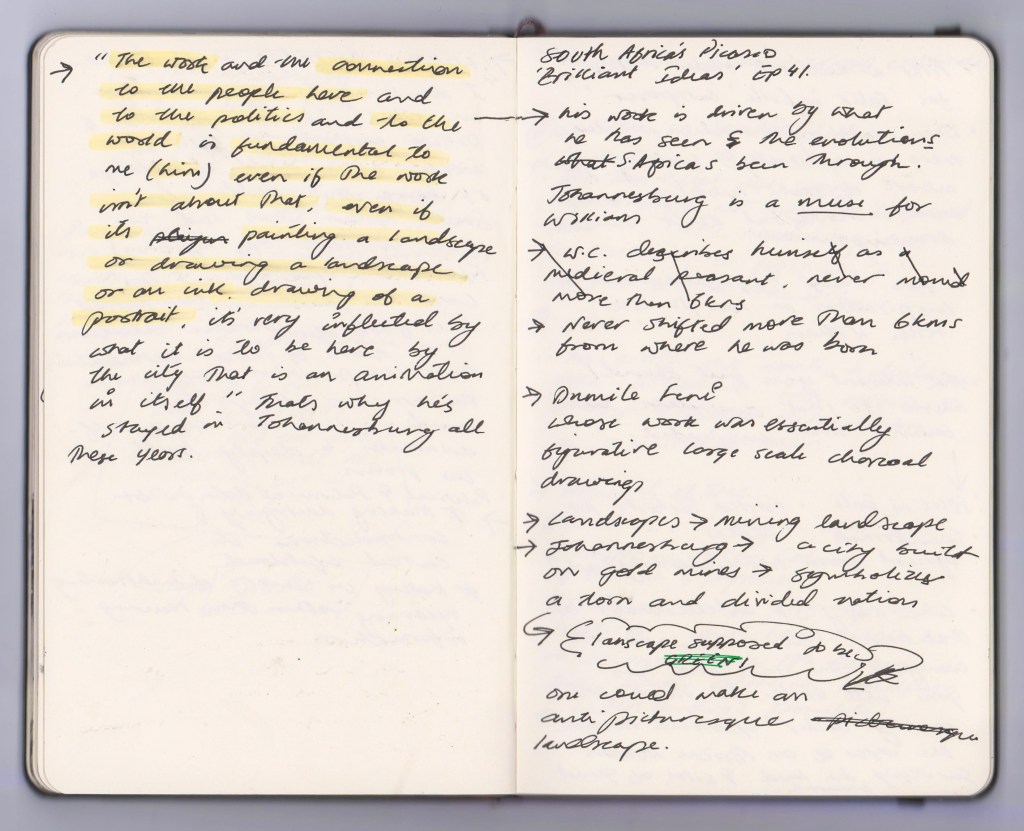 → "The work and the connection
to the people here and
to the politics and to the
world is fundamental to
me (him) even if the work
isn't about that, even if
its painting a landscape
or drawing a landscape
or an ink drawing of a
portrait, it's very inflected by
what it is to be here by
the city that is an animation
in itself" That's why he's
stayed in Johannesburg all
these years.
South Africa's Picasso
'Brilliant Ideas' EP 41.
→ his work is driven by what
he has seen & the evolutions
what S. Africa's been through.
Johannesburg is a muse for
William
→ W.C. describes himself as a
medieval peasant, never moved
more than 6kms
→ Never shifted more than 6kms
from where he was born
→ Dumile Feni
whose work was essentially
figurative large scale charcoal
drawings
→ Landscapes → mining landscape
→ Johannesburg → a city built
on gold mines → symbolizes
a torn and divided nation
lanscape supposed to be
GREEN!
one could make an
anti picturesque picturesque
landscape.